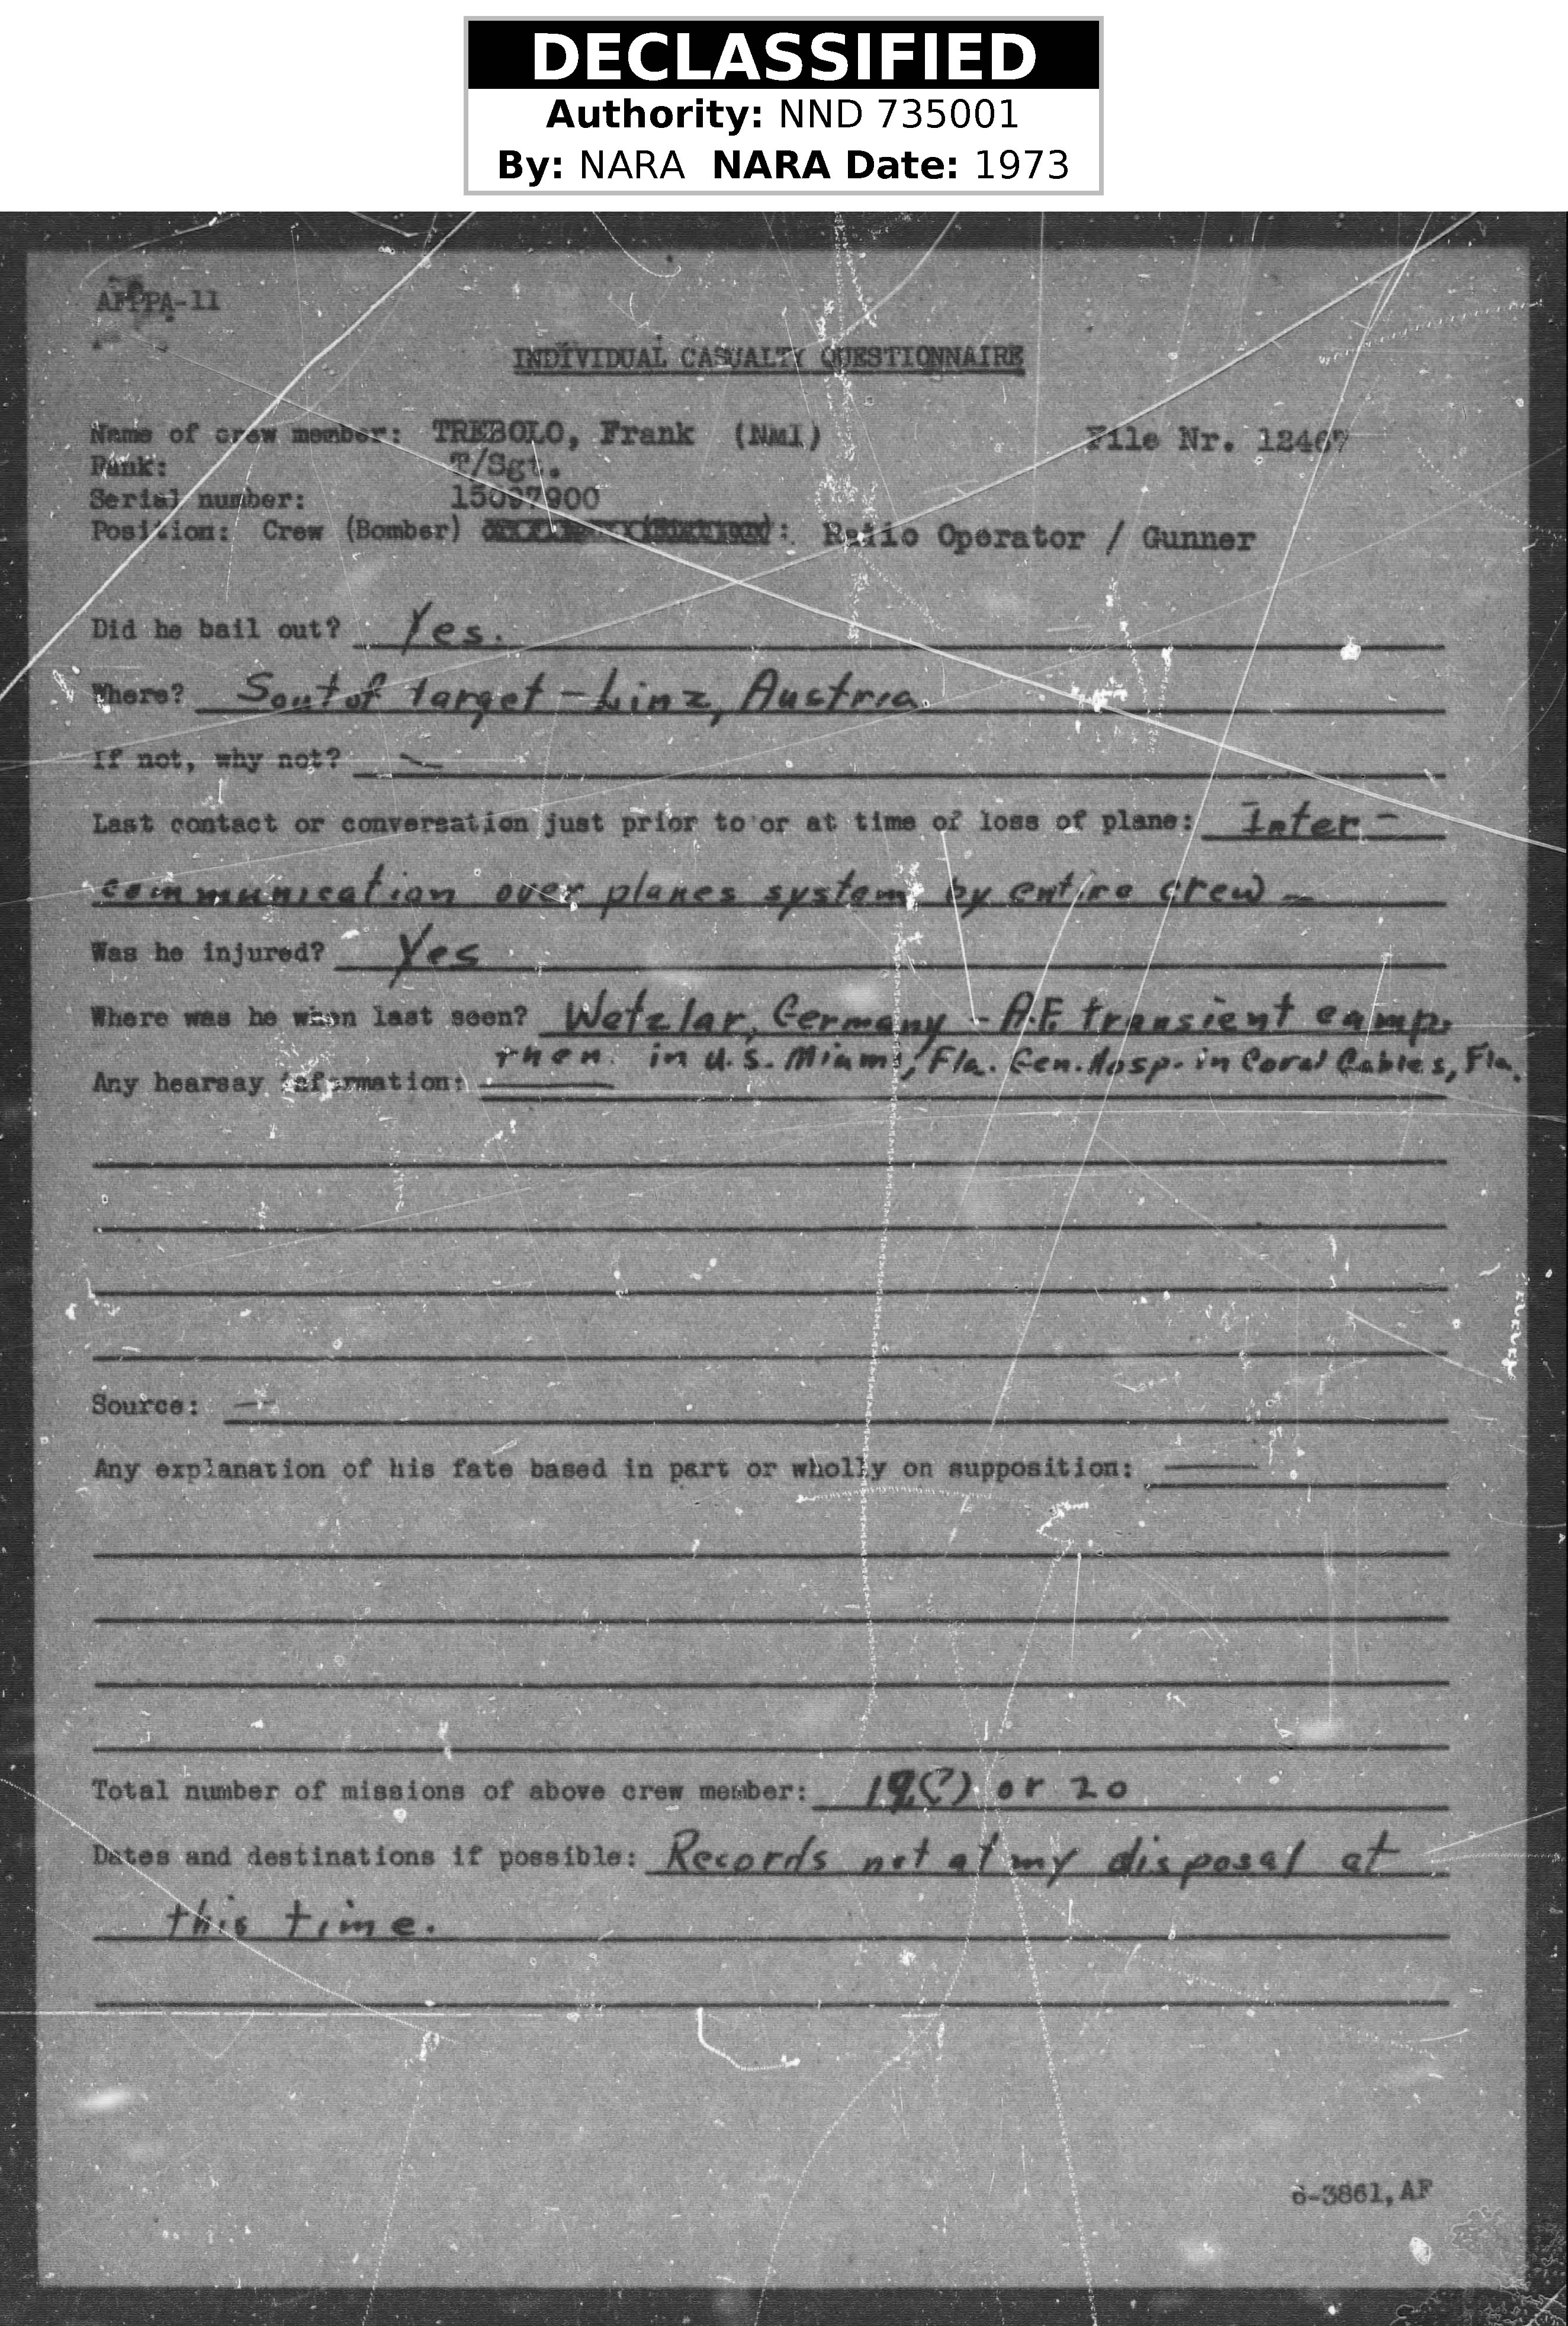 DECLASSIFIED
Authority: NND 735001
By: NARA NARA Date: 1973
AFPPA-11
INDIVIDUAL CASUALTY QUESTIONNAIRE
Name of crew member: TREBOLO, Frank (NMI) File Nr. 12467
Rank: T/Sgt.
Serial number: 15097900
Position: Crew (Bomber) : Radio Operator / Gunner
Did he bail out? Yes.
Where? Sout of Target - Linz, Austria.
If not, why not? —
Last contact or conversation just prior to or at time of loss of plane: Inter-
communication over planes system by entire crew —
Was he injured? Yes
Where was he when last seen? Wetzlar, Germany - A.F. transient camp,
then in U.S. Miami, Fla. Gen. Hosp. in Coral Gables, Fla.
Any hearsay information: —
Source: —
Any explanation of his fate based in part or wholly on supposition: —
Total number of missions of above crew member: 19(?) or 20
Dates and destinations if possible: Records not at my disposal at
this time.
6-3861, AF